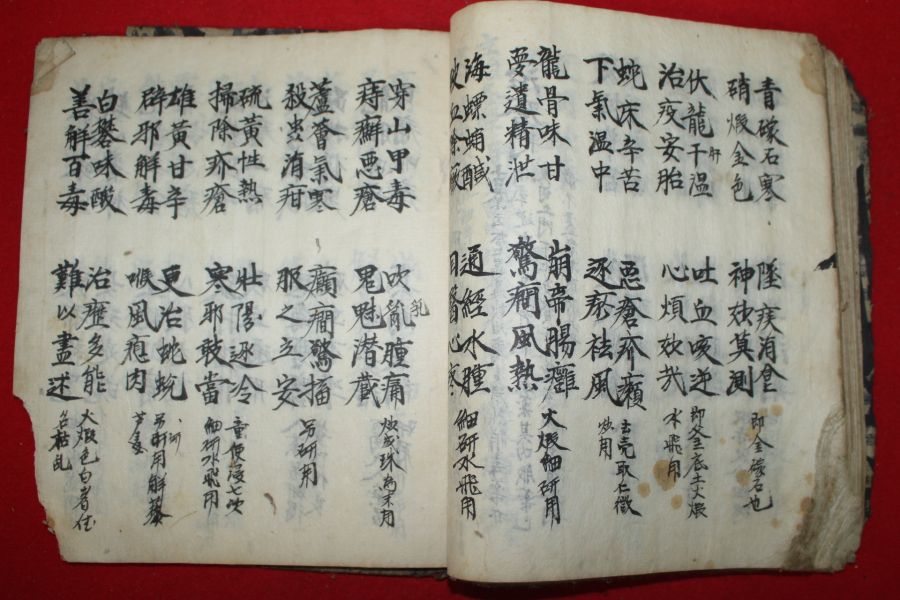 青礞石寒 墜痰消食
硝煅金色 神效莫測 即金礞石也
伏龍干肝温 吐血咳逆 即釜底土火煅
治疫安胎 心煩效哉 水飛用
蛇床辛苦 惡瘡疥癩 去壳取仁微
下氣温中 逐瘀祛風 炒用
龍骨味甘 崩帶腸癰 火煅細研用
夢遺精泄 驚癎風熱
海螵蛸鹹 通經水腫 細研水飛用
穿山甲毒 吹亂乳腫痛 炒成珠為末用
痔癬惡瘡 鬼魅潜藏
蘆薈氣寒 癲癎驚搐 另研用
殺虫消疳 服之立安
硫黄性熱 壯陽逐冷 童便浸七次
掃除疥瘡 寒邪敢當 細研水飛用
雄黄甘辛 更治蛇蛇
辟邪解毒 喉風瘜肉 研用解藜芦毒
白礬味酸 治症多能 火煅色白者佳
善解百毒 難以盡述 名枯